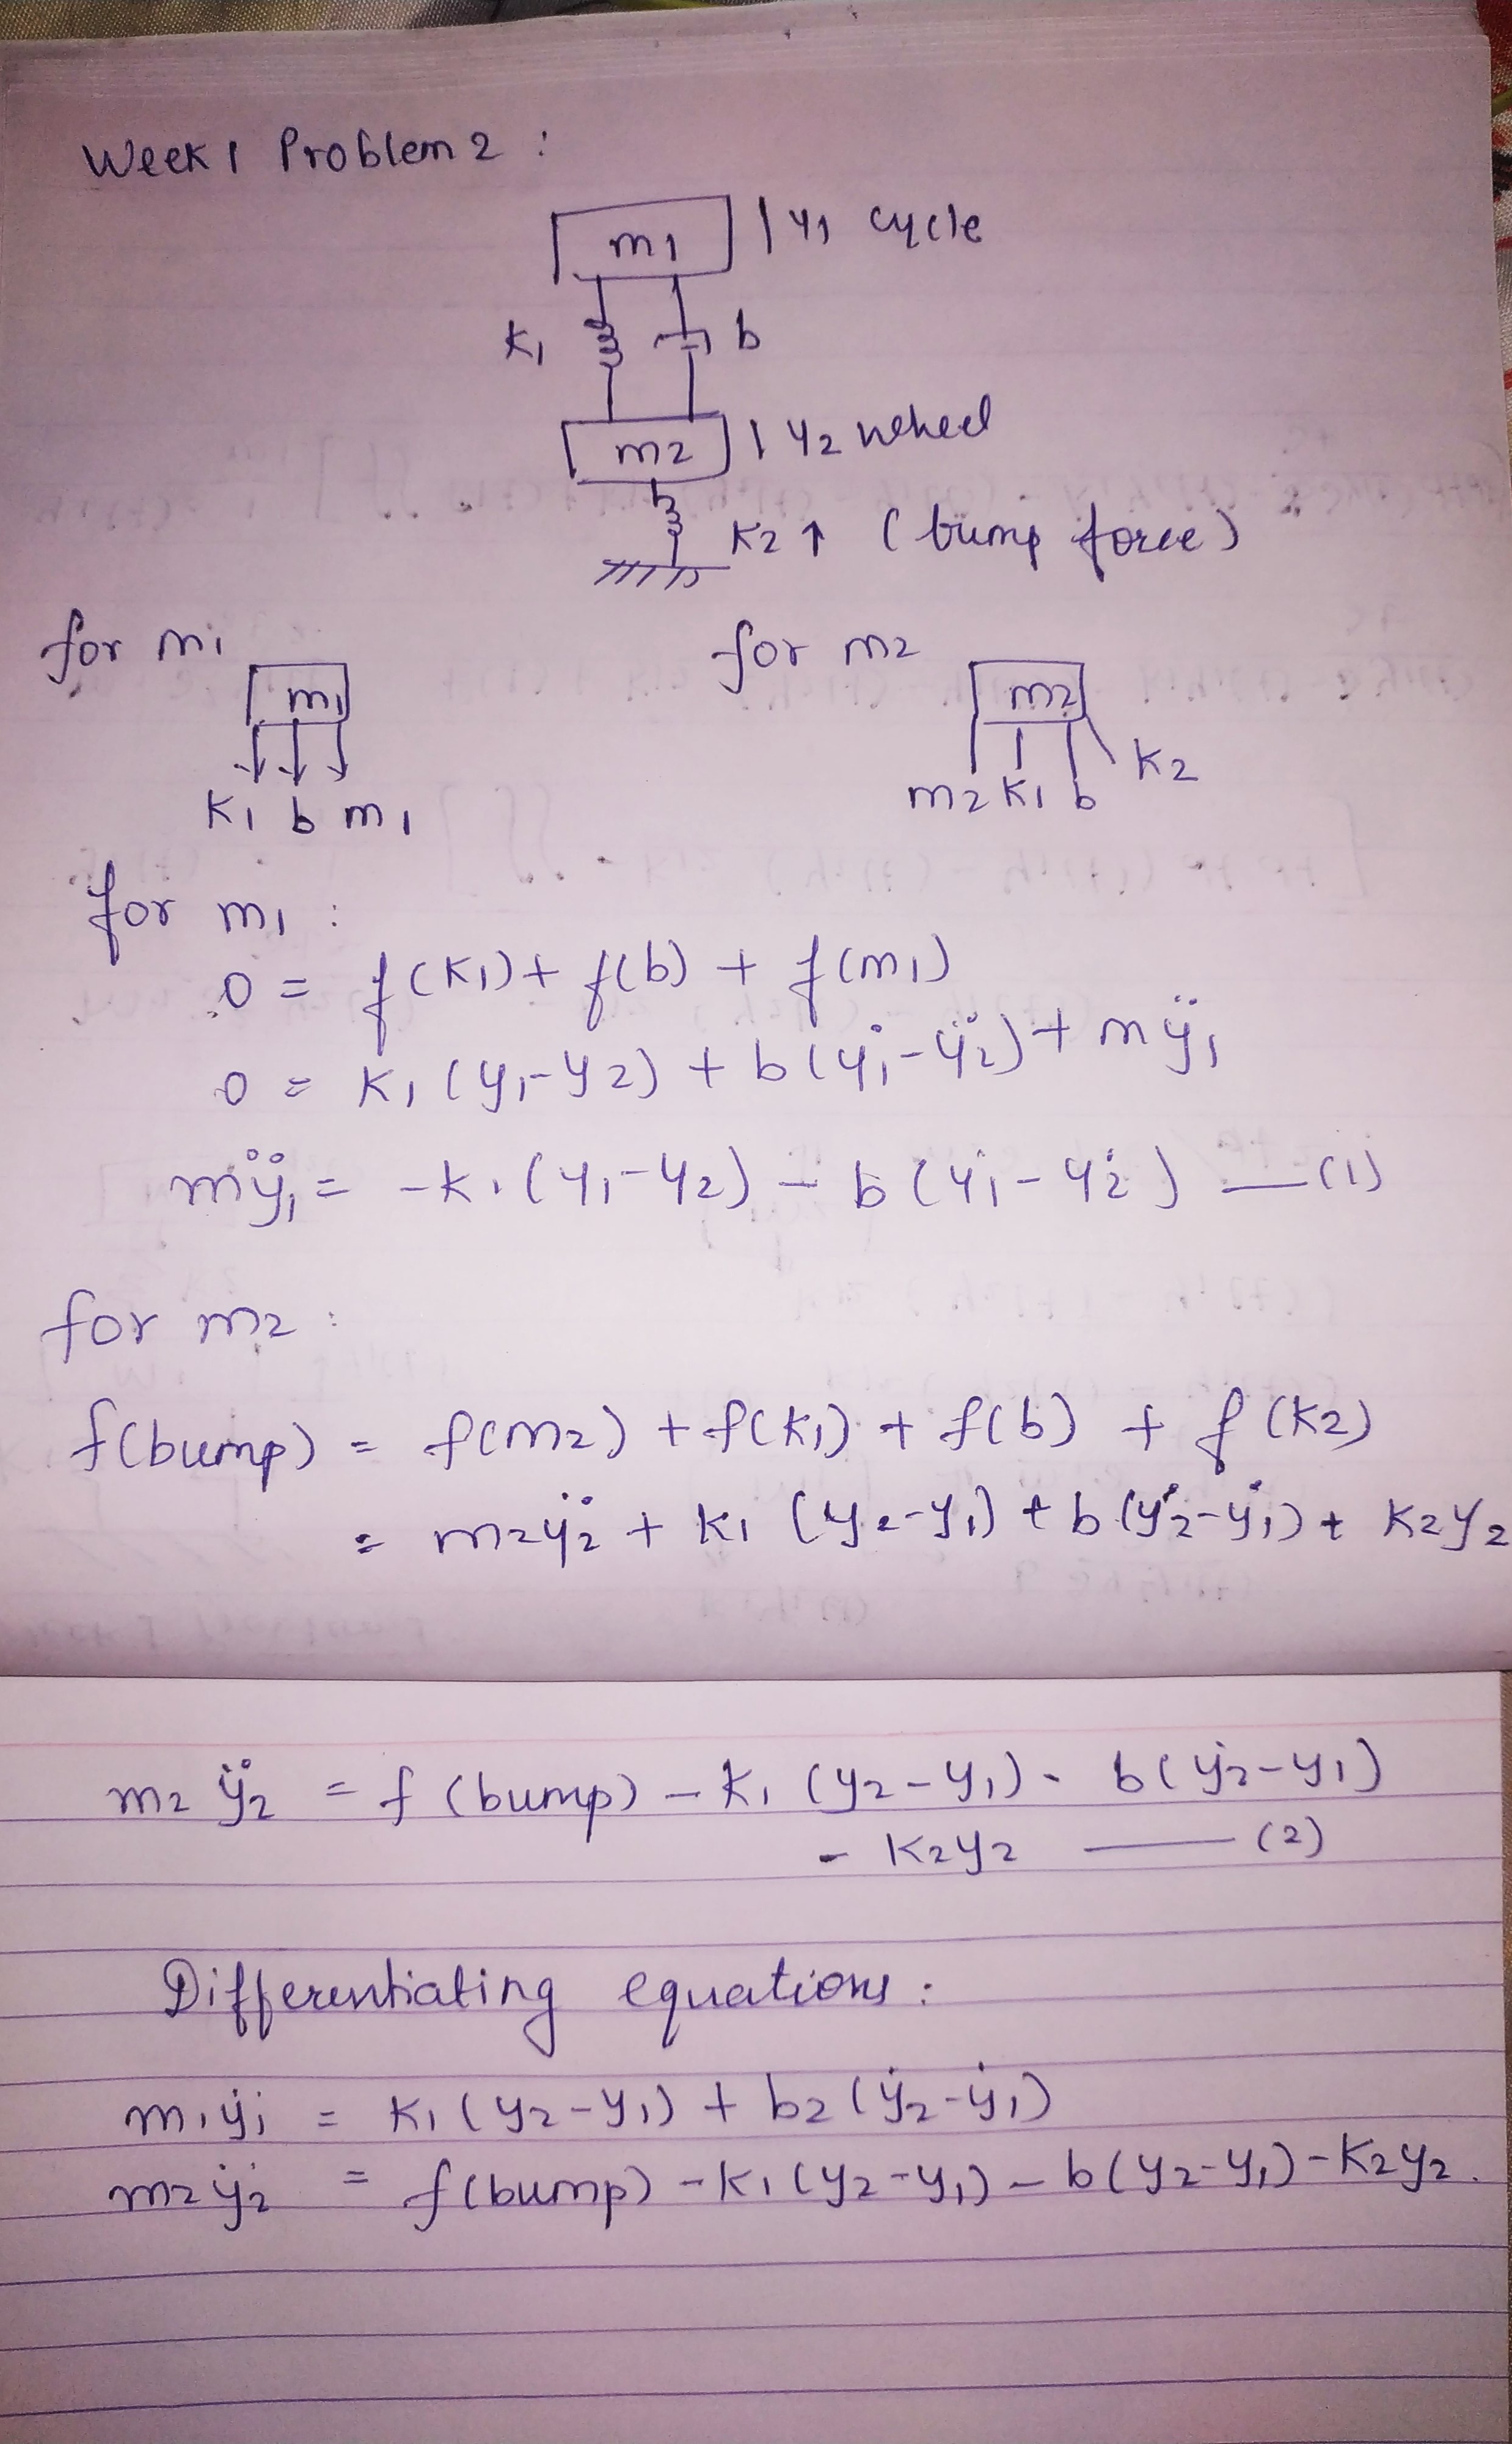 Week 1 Problem 2 :
m1 | y1 cycle
K1 b
m2 | y2 wheel
K2 ↑ (bump force)
for m1 for m2
m1 m2
K1 b m1 m2 K1 b K2
for m1 :
0 = f(K1) + f(b) + f(m1)
0 = K1 (y1-y2) + b(ẏ1-ÿ2) + mÿ1
mÿ1 = -K1(y1-y2) - b(ẏ1-ẏ2) — (1)
for m2 :
f(bump) = f(m2) + f(K1) + f(b) + f(K2)
= m2ÿ2 + K1 (y2-y1) + b(ẏ2-ẏ1) + K2y2
m2 ÿ2 = f (bump) - K1 (y2-y1) - b(ẏ2-y1)
- K2y2 — (2)
Differentiating equations :
m1ÿ1 = K1(y2-y1) + b2(ẏ2-ẏ1)
m2ÿ2 = f(bump) - K1(y2-y1) - b(y2-y1) - K2y2.